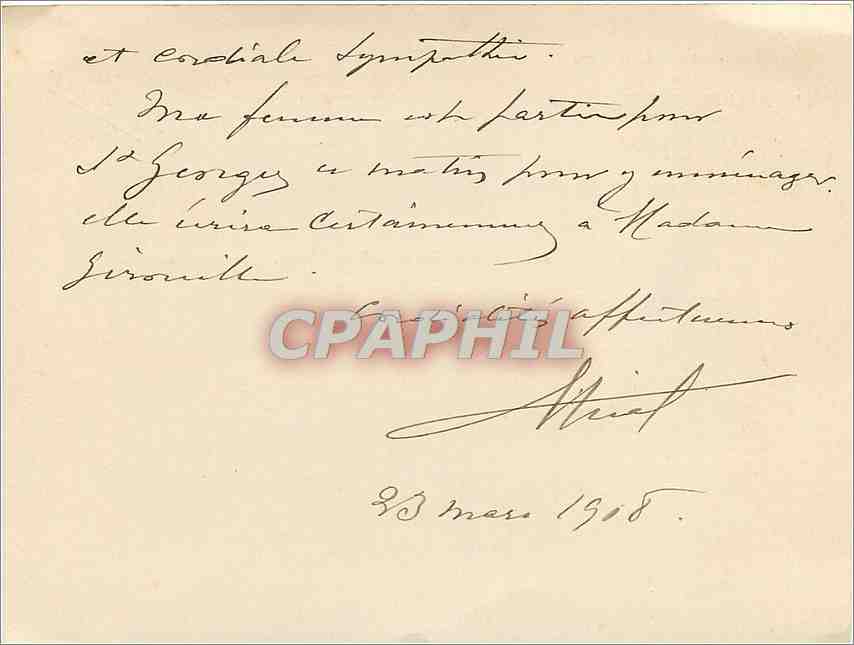 et cordiale sympathie.
Ma femme est partie pour
St Georges ce matin pour y emménager.
elle écrira certainement à Madame
Girouille.
Cordialités affectueuses
CPAPHIL
23 mars 1908.